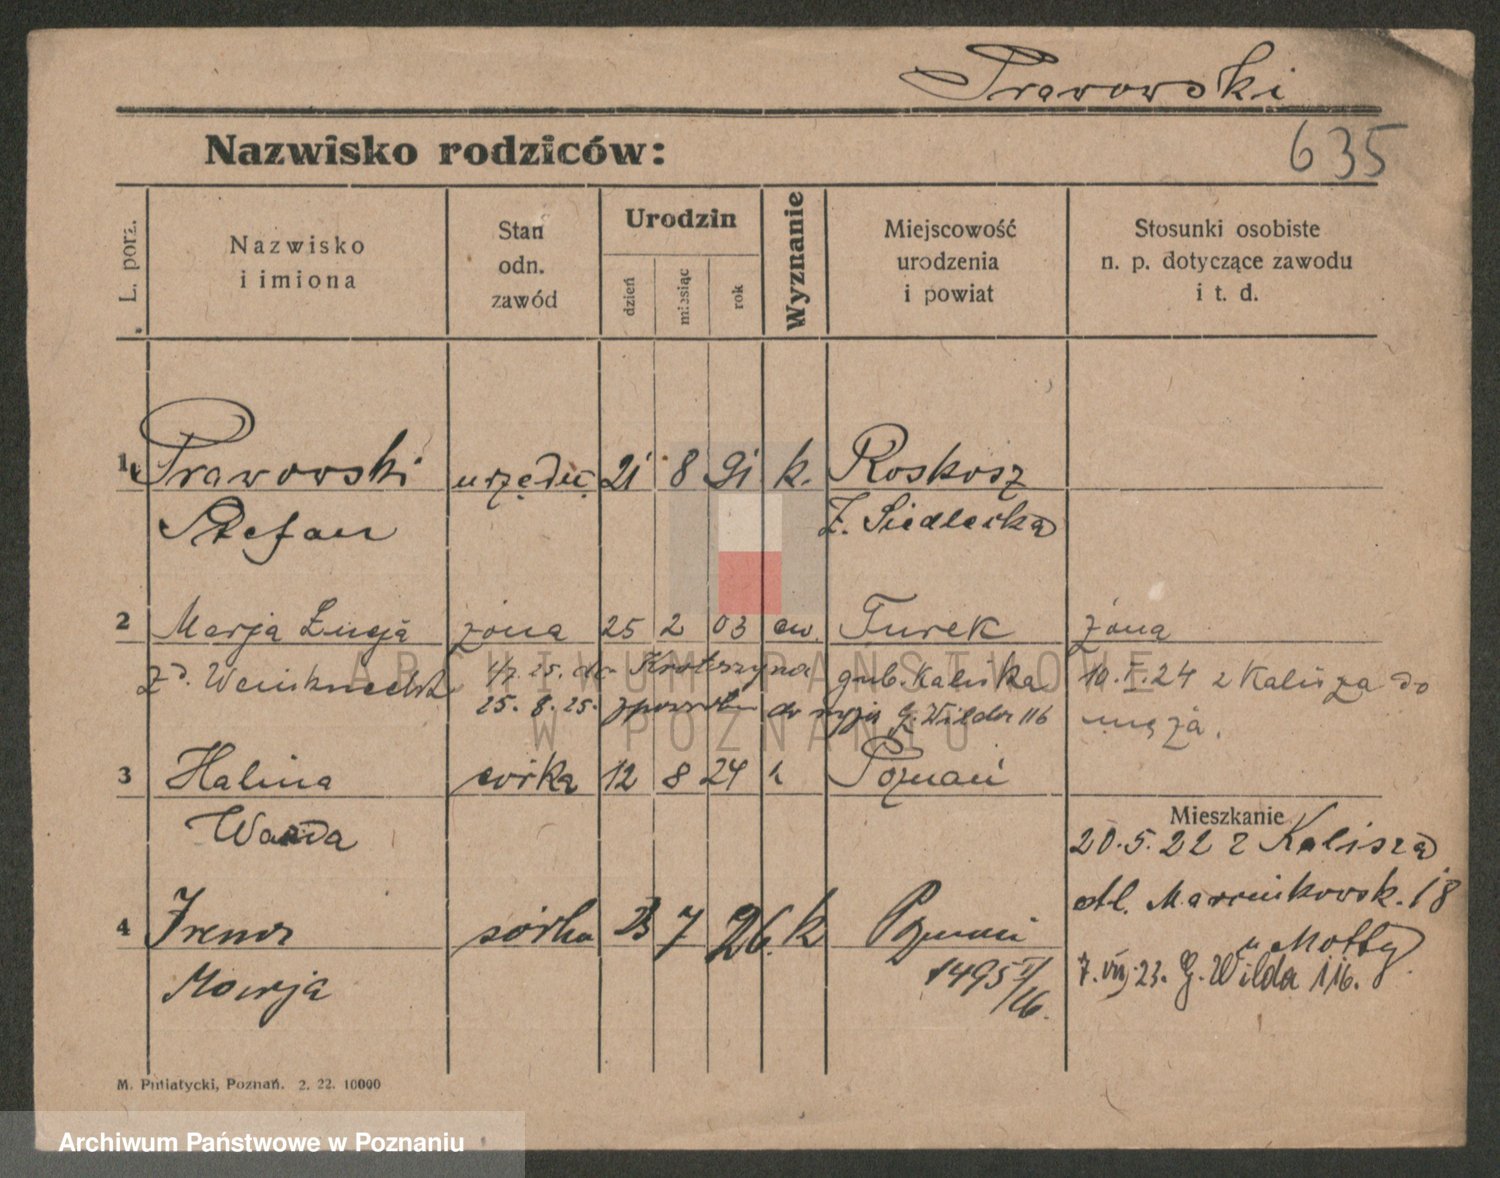 Prawowski
635
Nazwisko rodziców:
L. porz.
Nazwisko
i imiona
Stan
odn.
zawód
Urodzin
dzień
miesiąc
rok
Wyznanie
Miejscowość
urodzenia
i powiat
Stosunki osobiste
n. p. dotyczące zawodu
i t. d.
1 Prawowski urzędn. 21 8 91 k. Roskosz
Stefan Z. Siedlecka
2 Marja Łucja żona 25 2 03 ew. Turek żona
zd. 1/7. 25. do Krotoszyna gub. Kaliska 10. I. 24 z Kalisza do
25. 8. 25. zpowrotem do G. Wilda 116 męża.
3 Halina córka 12 8 24 k Poznań
Wanda
Mieszkanie
20. 5. 22 z Kalisza
4 Irena córka 23 7 26. k Poznań
Marja
Marcinkowsk. 18
u Motty
7. VII. 23. G. Wilda 116.
M. Putiatycki, Poznań. 2. 22. 10000
ARCHIWUM PAŃSTWOWE
W POZNANIU
Archiwum Państwowe w Poznaniu